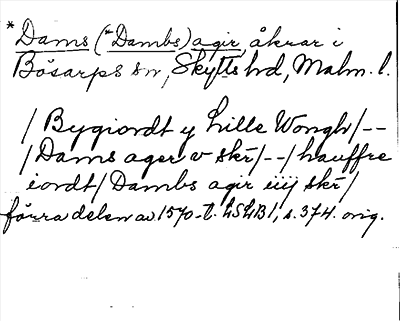 *Dams (*Dambs) agir, åkrar i
Bösarps sn, Skytts hd, Malm. l.
/ Bygiordt y Lille Wongh / --
/ Dams ager v skr̄ / -- / hauffre
iordt / Dambs agir iiij skr̄ /
förra delen av 1570-t. LSLB1, s. 374. orig.